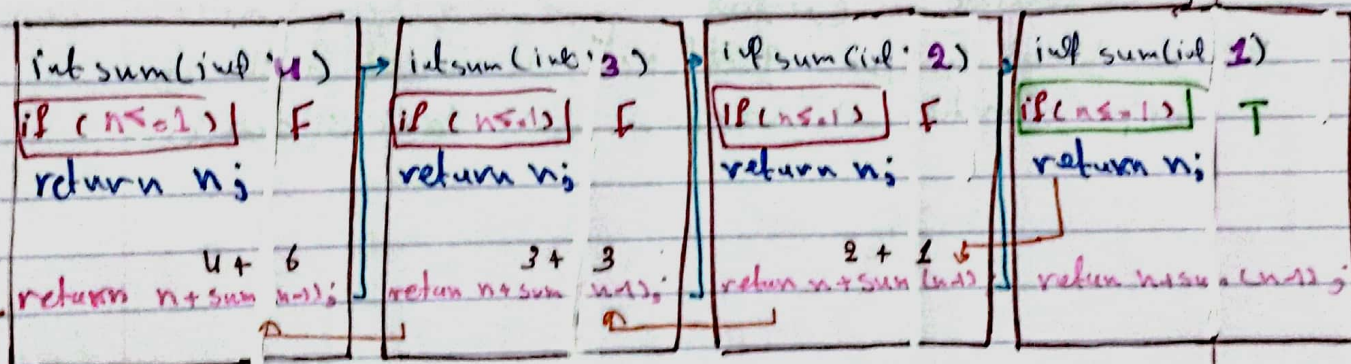 int sum(int 4)
if (n<=1) F
return n;
4 + 6
return n+sum (n-1);
int sum(int 3)
if (n<=1) F
return n;
3 + 3
return n+sum (n-1);
int sum(int 2)
if (n<=1) F
return n;
2 + 1
return n+sum (n-1)
int sum(int 1)
if (n<=1) T
return n;
return n+sum (n-1);